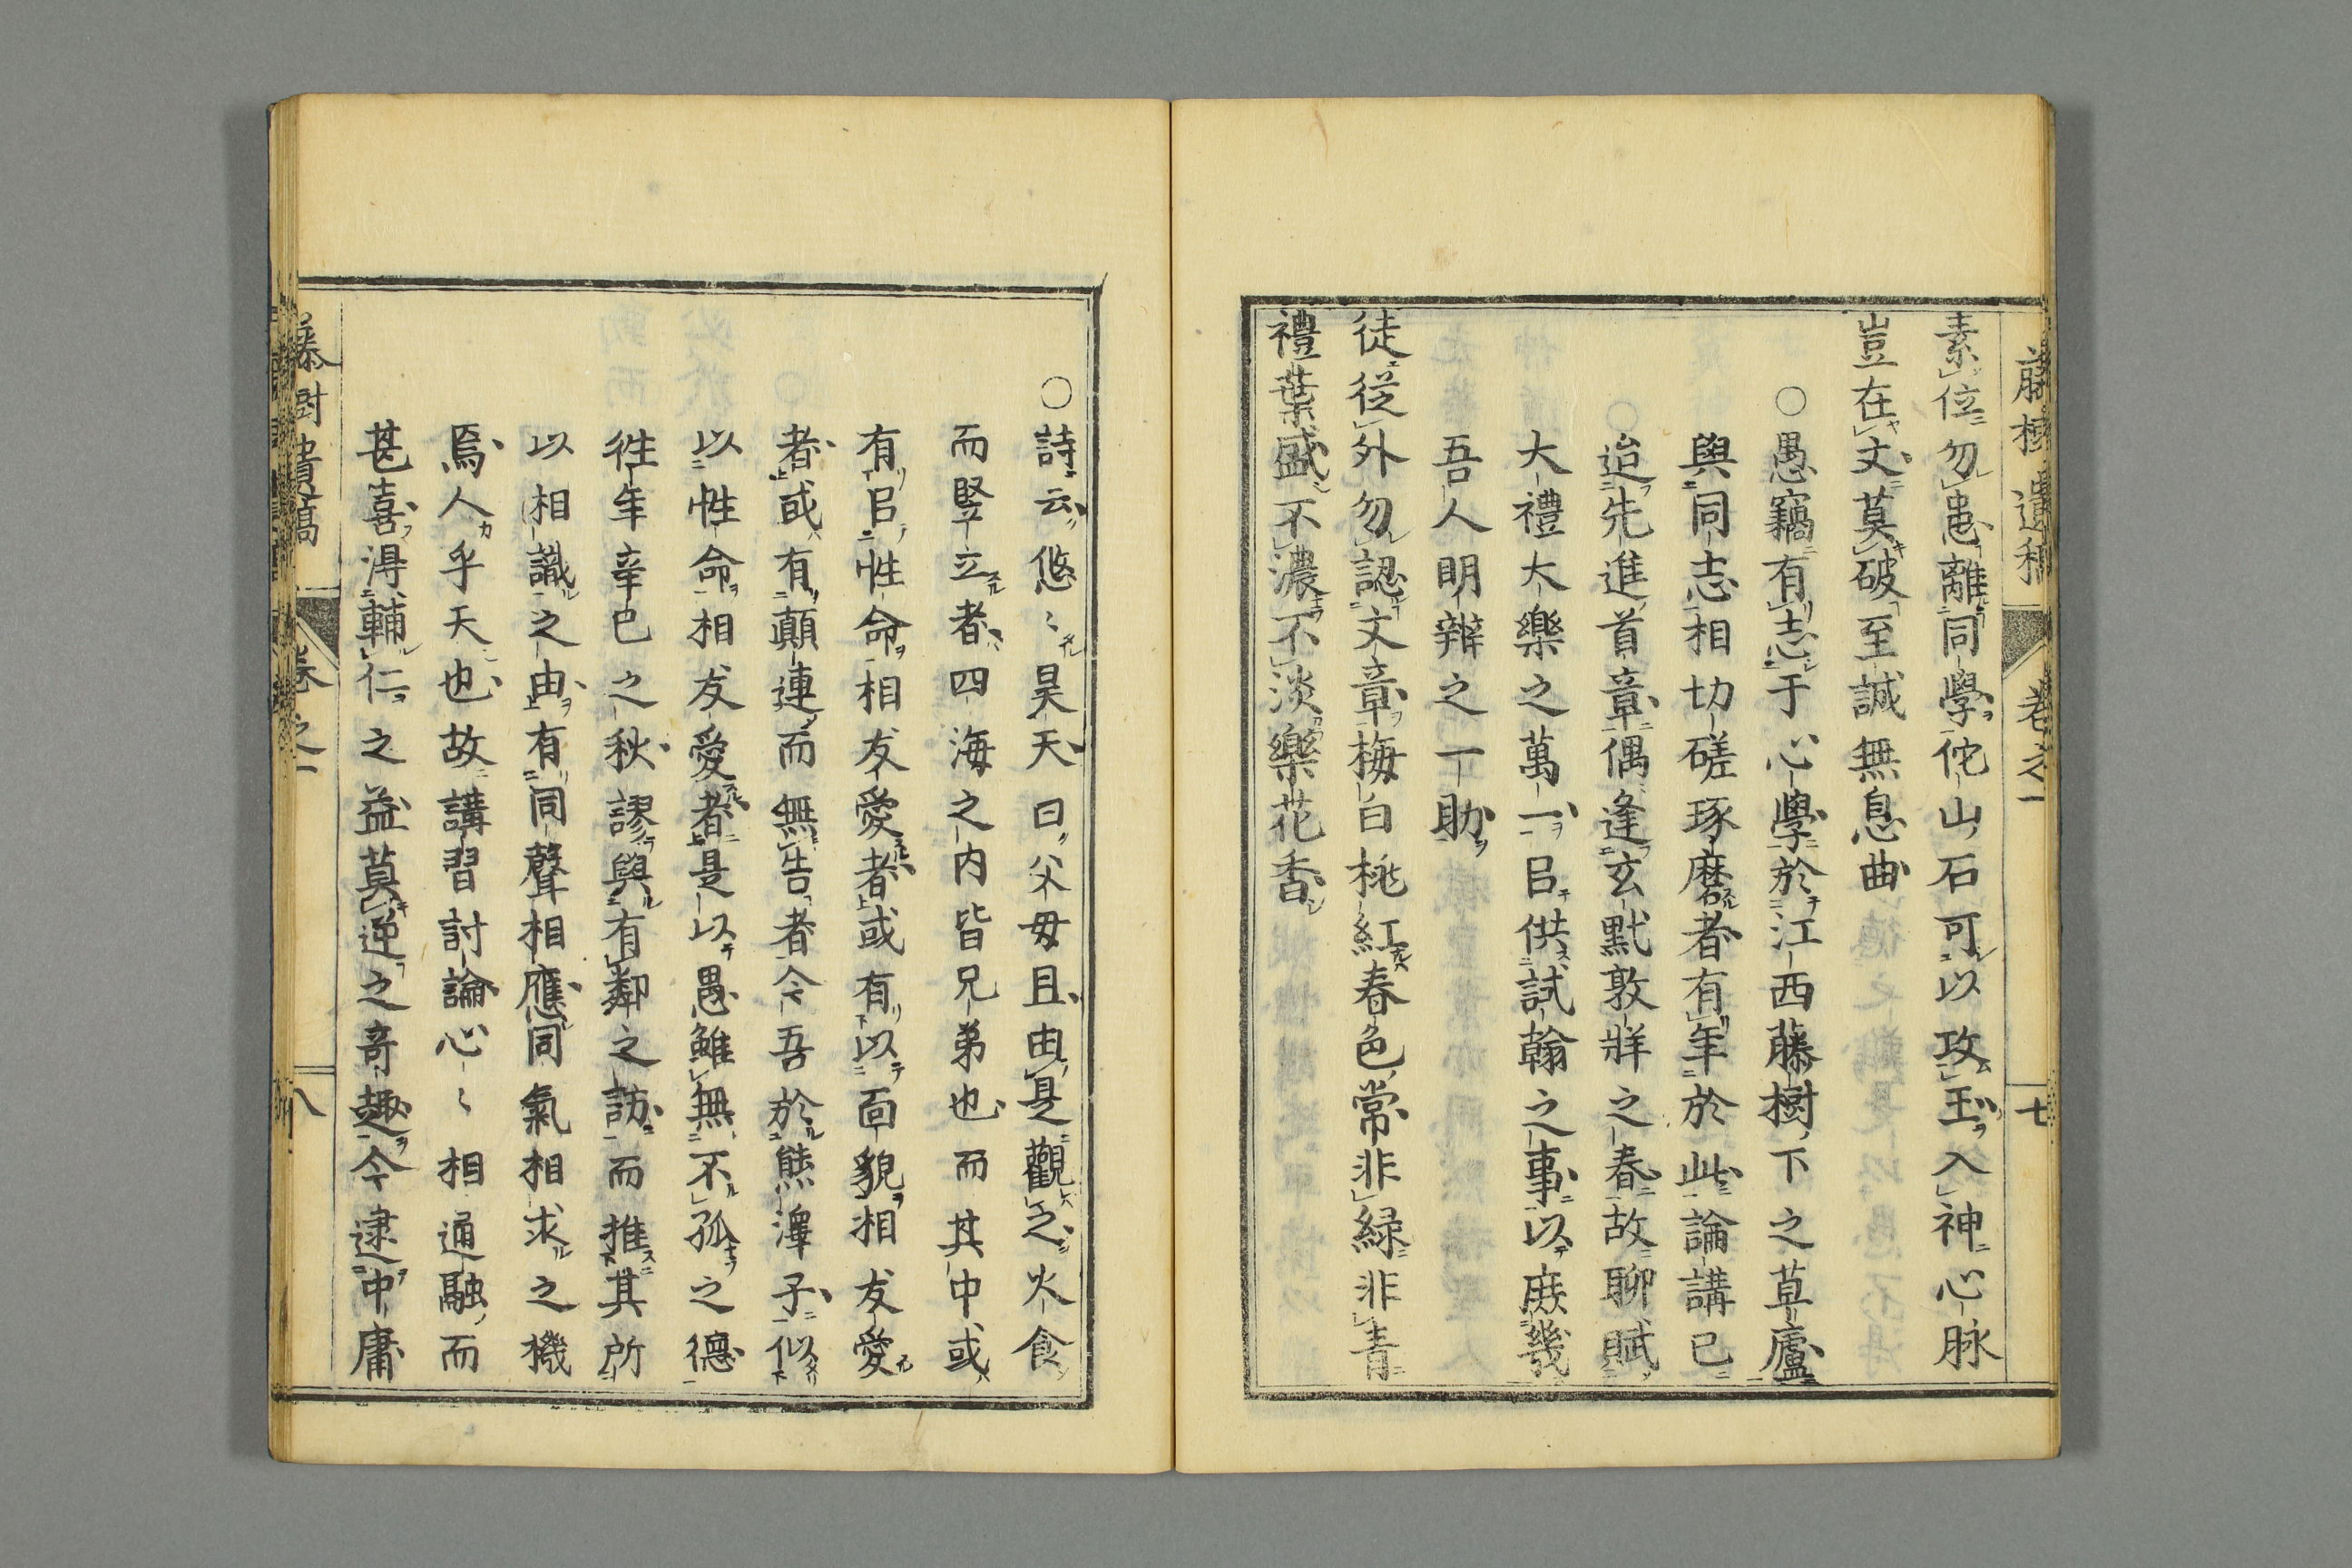 藤樹遺稿 卷之一 七
素位勿患離同學佗山石可以攻玉入神心脉
豈在文莫破至誠無息曲
○愚竊有志于心學於江西藤樹下之草廬
與同志相切磋琢磨者有年於此論講已
○迨先進首章偶逢玄黓敦牂之春故聊賦
大禮大樂之萬一㠯供試翰之事以庶幾
吾人明辯之一助
徒從外勿認文章梅白桃紅春色常非緑非青
禮葉盛不濃不淡樂花香
○詩云悠〻昊天曰父母且由是觀之火食
而竪立者四海之内皆兄弟也而其中或
有㠯性命相友愛者或有以面貌相友愛
者或有顛連而無告者今吾於熊澤子似
以性命相友愛者是以愚鮏無不孤之德
徃年辛巳之秋謬與有鄰之訪而推其所
以相識之由有同聲相應同氣相求之機
焉人乎天也故講習討論心〻相通融而
甚喜得輔仁之益莫逆之竒趣今逮中庸
藤樹遺稿 卷之一 八